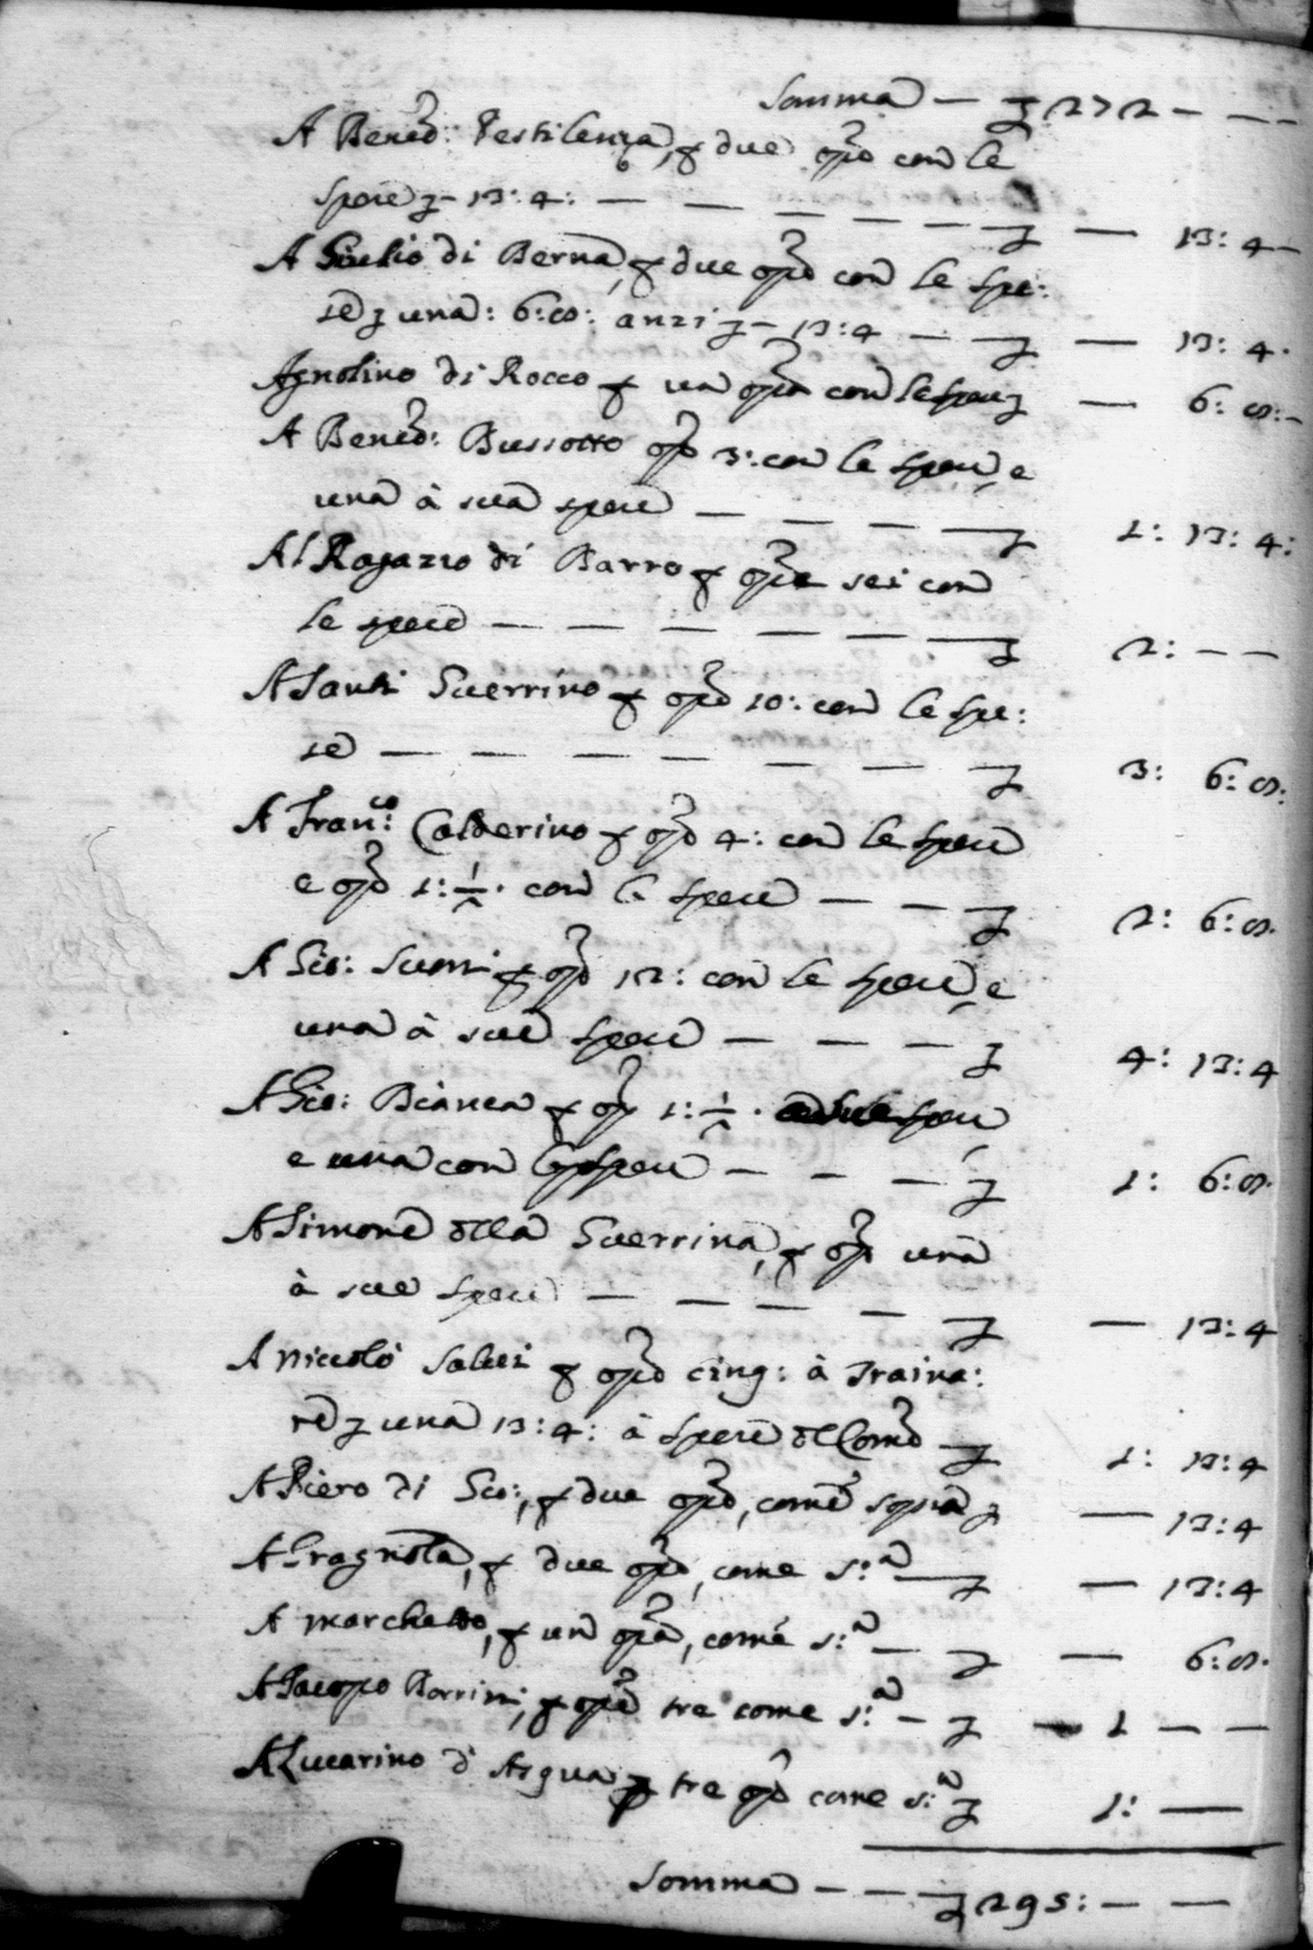 Somma — — £ 272 — — —
A Bened: Pestilenza, p due opre con le
spese £ — 13: 4: — — — — — — £ — 13: 4 —
A Giulio di Berna, p due opre con le spe:
se £ una: 6: 8: anzi £ — 13: 4 — — £ — 13: 4.
Agnolino di Rocco p una opra con le spese £ — 6: 8: —
A Bened: Bussotto opre 3: con le spese, e
una à sua spese — — — — £ 1: 13: 4:
Al Ragazzo di Barro p opre sei con
le spese — — — — — — £ 2: — —
A Santi Guerrino p opre 10: con le spe:
se — — — — — — — £ 3: 6: 8:
A Franco: Calderino p opre 4: con le spese
e opre 1: 1/2. con le spese — — £ 2: 6: 8.
A Gio: p opre 12: con le spese, e
una à sue spese — — — £ 4: 13: 4
A Gio: Bianca p opre 1: 1/2.
e una con spese — — — £ 1: 6: 8.
A Simone della Guerrina, p opra una
à sue spese — — — — £ — 13: 4
A Niccolò Salvi p opre cinq: à Traina:
re £ una 13: 4: à spese del Como £ 1: 13: 4
A Piero di Gio:, p due opre, come sopra £ — 13: 4
A Gragnola, p due opre, come s:a — £ — 13: 4
A Marchetto, p una opra, come s:a — £ — 6: 8.
A Jacopo Borrini, p opre tre come s:a — £ — 1 — —
A Lucarino d'Acqua p tre opre come s:a £ 1: —
Somma — — £ 295: — —